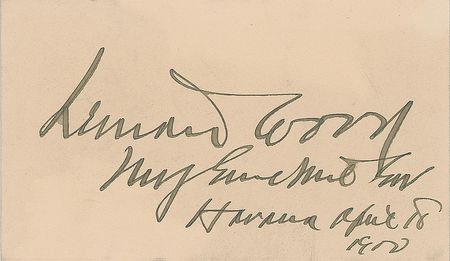 Leonard Wood
Maj Genl Mil Gov
Havana April 18
1900